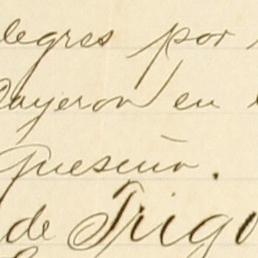 legres por
Cayeron en
Queseño.
de Trigo